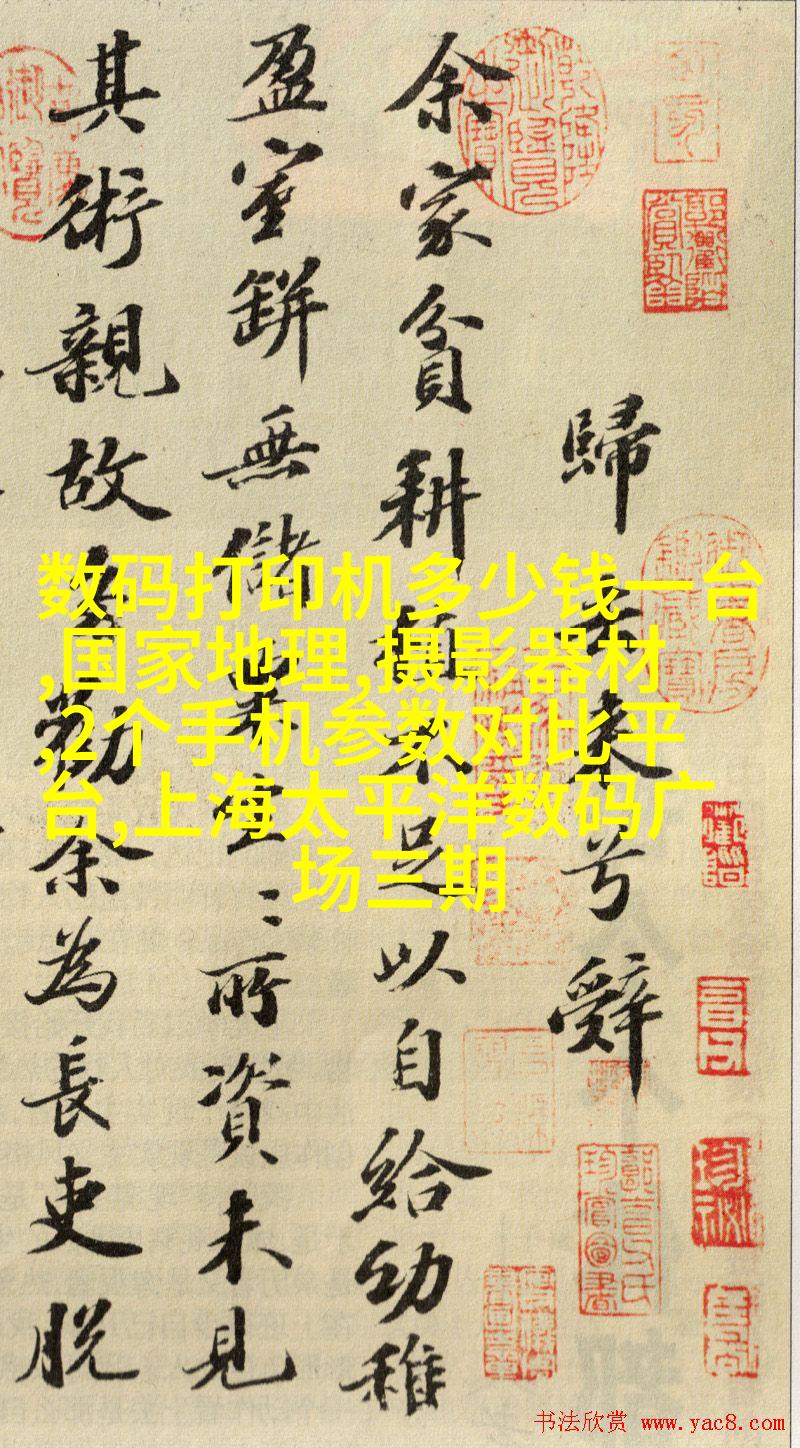 歸去來兮辭
余家貧耕植不足以自給幼稚
盈室缾無儲粟生〻所資未見
其術親故多勸余為長吏脫
数码打印机多少钱一台
,国家地理,摄影器材
,2个手机参数对比平
台,上海太平洋数码广
场三期
书法欣赏 www.yac8.com